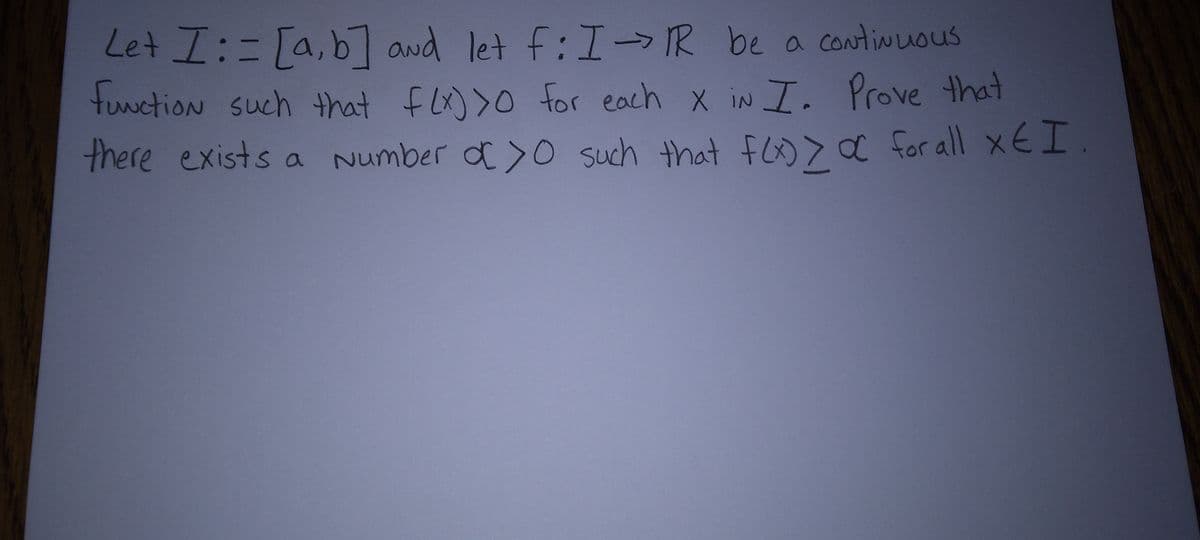 Let I := [a,b] and let f: I → ℝ be a continuous
function such that f(x)>0 for each x in I. Prove that
there exists a number α>0 such that f(x)≥α for all x∈I.